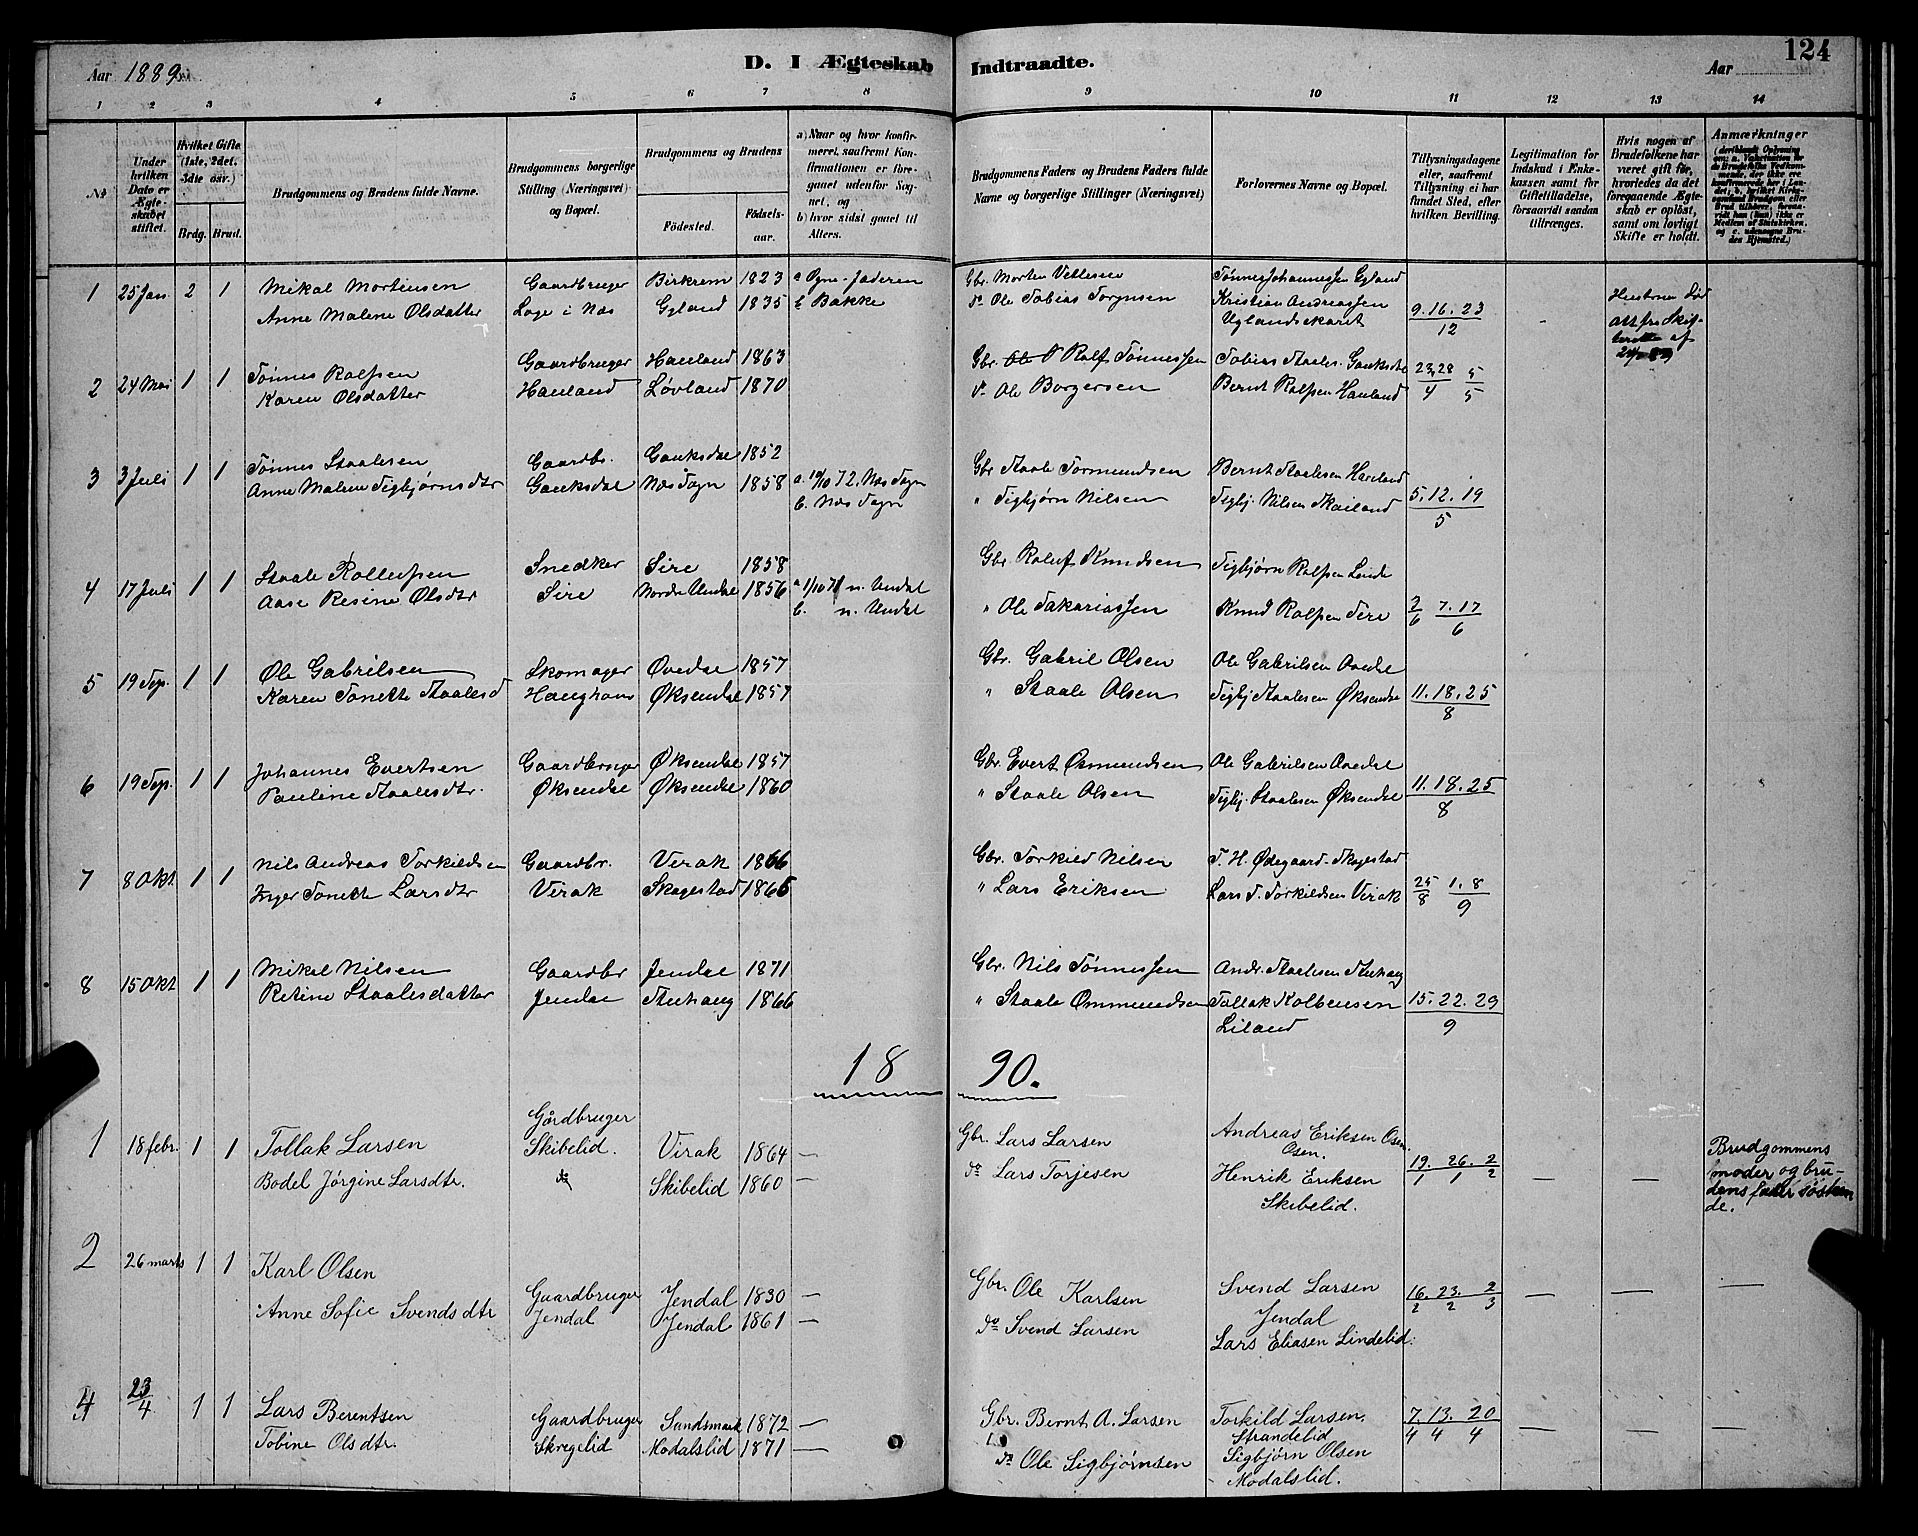 Aar 1889.
D. I Ægteskab Indtraadte.
Aar
124
1 2 3 4 5 6 7 8 9 10 11 12 13 14
№
Under hvilken Dato er Ægteskabet stiftet.
Hvilket Gifte (1ste, 2det, 3die osv.)
Brdg. Brud.
Brudgommens og Brudens fulde Navne.
Brudgommens borgerlige Stilling (Næringsvei) og Bopæl.
Brudgommens og Brudens
Fødested.
Fødsels-aar.
a) Naar og hvor konfirmeret, saafremt Konfirmationen er foregaaet udenfor Sognet, og
b) hvor sidst gaaet til Alters.
Brudgommens Faders og Brudens Faders fulde Navne og borgerlige Stillinger (Næringsvei)
Forlovernes Navne og Bopæl.
Tillysningsdagene eller, saafremt Tillysning ei har fundet Sted, efter hvilken Bevilling.
Legitimation for Indskud i Enkekassen samt for Giftetilladelse, forsaavidt saadan tiltrænges.
Hvis nogen af Brudefolkene har været gift før, hvorledes da det foregaaende Ægteskab er opløst, samt om lovligt Skifte er holdt.
Anmærkninger
1 25 Jan. 2 1 Mikal Mortensen Gaardbruger Birkrem 1823 a Ogne-Jæderen Gbr. Morten Vetlesen Tønnes Johannessen Gyland
Anne Malene Olsdatter Loge i Næs Gyland 1835 b Bakke do Ole Tobias Torgusen Kristian Andreassen 9. 16. 23
Uglandsskaret 12
2 24 Mai 1 1 Tønnes Rolfsen Gaardbruger Hauland 1863 Gbr. Rolf Tønnessen Tobias Staales. Gauksdal 23. 28 5
Karen Olsdatter Hauland Løvland 1870 do Ole Borgersen Bernt Rolfsen Hauland 4 5
3 3 Juli 1 1 Tønnes Staalesen Gaardbr. Gauksdal 1852 Gbr Staale Tormundsen Bernt Staalesen Haviland
Anne Malene Sigbjørnsdtr Gauksdal Næs Sogn 1858 a. 1/10 72. Næs Sogn " Sigbjørn Nilsen Sigbj. Nilsen Skailand 5. 12. 19
b. Næs Sogn 5
4 17 Juli 1 1 Staale Rollefsen Snedker Sire 1858 Gbr. Roluf Knudsen Sigbjørn Rolfsen Linde
Aase Resine Olsdtr Sire Nordre Undal 1856 a 1/10 71 n. Undal " Ole Sakariassen Knud Rolfsen Sire 2/6 7. 17
b. n. Undal 6
5 19 Sep. 1 1 Ole Gabrilsen Skomager Ovedal 1857 Gbr. Gabril Olsen Ole Gabrilsen Ovedal
Karen Tonette Staalesd Haughom Øksendal 1857 " Staale Olsen Sigbj Staalesen Øksendal 11. 18. 25
8
6 19 Sep. 1 1 Johannes Evertsen Gaardbruger Øksendal 1857 Gbr. Evert Osmundsen Ole Gabrilsen Ovedal
Pauline Staalesdtr. Øksendal Øksendal 1860 " Staale Olsen Sigbj. Staalesen Øksendal 11. 18. 25
8
7 8 Okt 1 1 Nils Andreas Torkildsen Gaardbr. Virak 1866 Gbr. Torkild Nilsen T. H. Ødegaard. Skogestad
Inger Tonette Larsdtr Virak Skogestad 1865 " Lars Eriksen Lars T. Torkildsen Virak 25/8 1. 8
9
8 15 Okt 1 1 Mikal Nilsen Gaardbr Jendal 1871 Gbr. Nils Tønnessen Andr. Staalesen Stuhaug
Resine Staalesdatter Jendal Stuhaug 1866 " Staale Ommundsen Tollak Kolbensen 15. 22. 29
Liland 9
18 90.
1 18 febr. 1 1 Tollak Larsen Gårdbruger Skibelid. Virak 1864 — Gbr. Lars Larsen Andreas Eriksen Osen
Osen.
Bodel Jørgine Larsdtr. do Skibelid 1860 — do Lars Torjesen Henrik Eriksen Skibelid. 19. 26. 2
1 1 2 — — Brudgommens moder og brudens fader søskende.
2 26 marts 1 1 Karl Olsen Gaardbruger Jendal 1830 — Gbr. Ole Karlsen Svend Larsen Jendal 16. 23. 2
Anne Sofie Svendsdtr Jendal Jendal 1861 — do Svend Larsen Lars Eliasen Lindelid. 2 2 3 — — —
4 23/4 1 1 Lars Berentsen Gaardbruger Sandsmark 1872 — Gbr. Bernt A. Larsen Torkild Larsen. Strandelid 7. 13. 20
Tobine Olsdtr. Skregelid Modalslid 1871 — do Ole Sigbjørnsen Sigbjørn Olsen Modalslid. 4 4 4 — — —